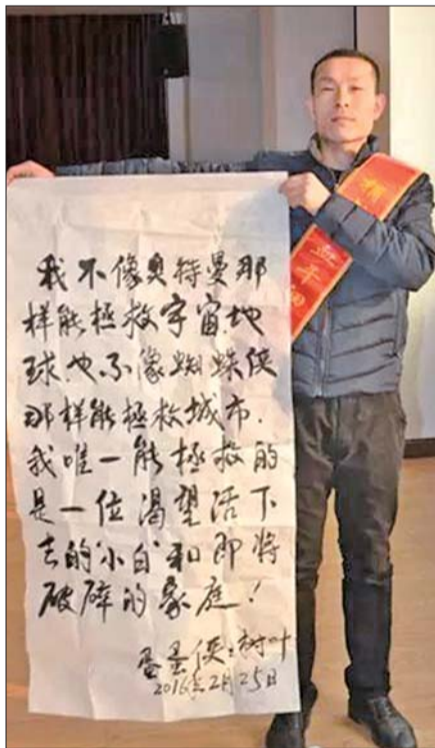 我不像奥特曼那
样能拯救宇宙地
球.也不像蜘蛛侠
那样能拯救城市.
我唯一能拯救的
是一位渴望活下
去的"小白"和即将
破碎的家庭!
侠:树叶
2016年2月25日
血干细